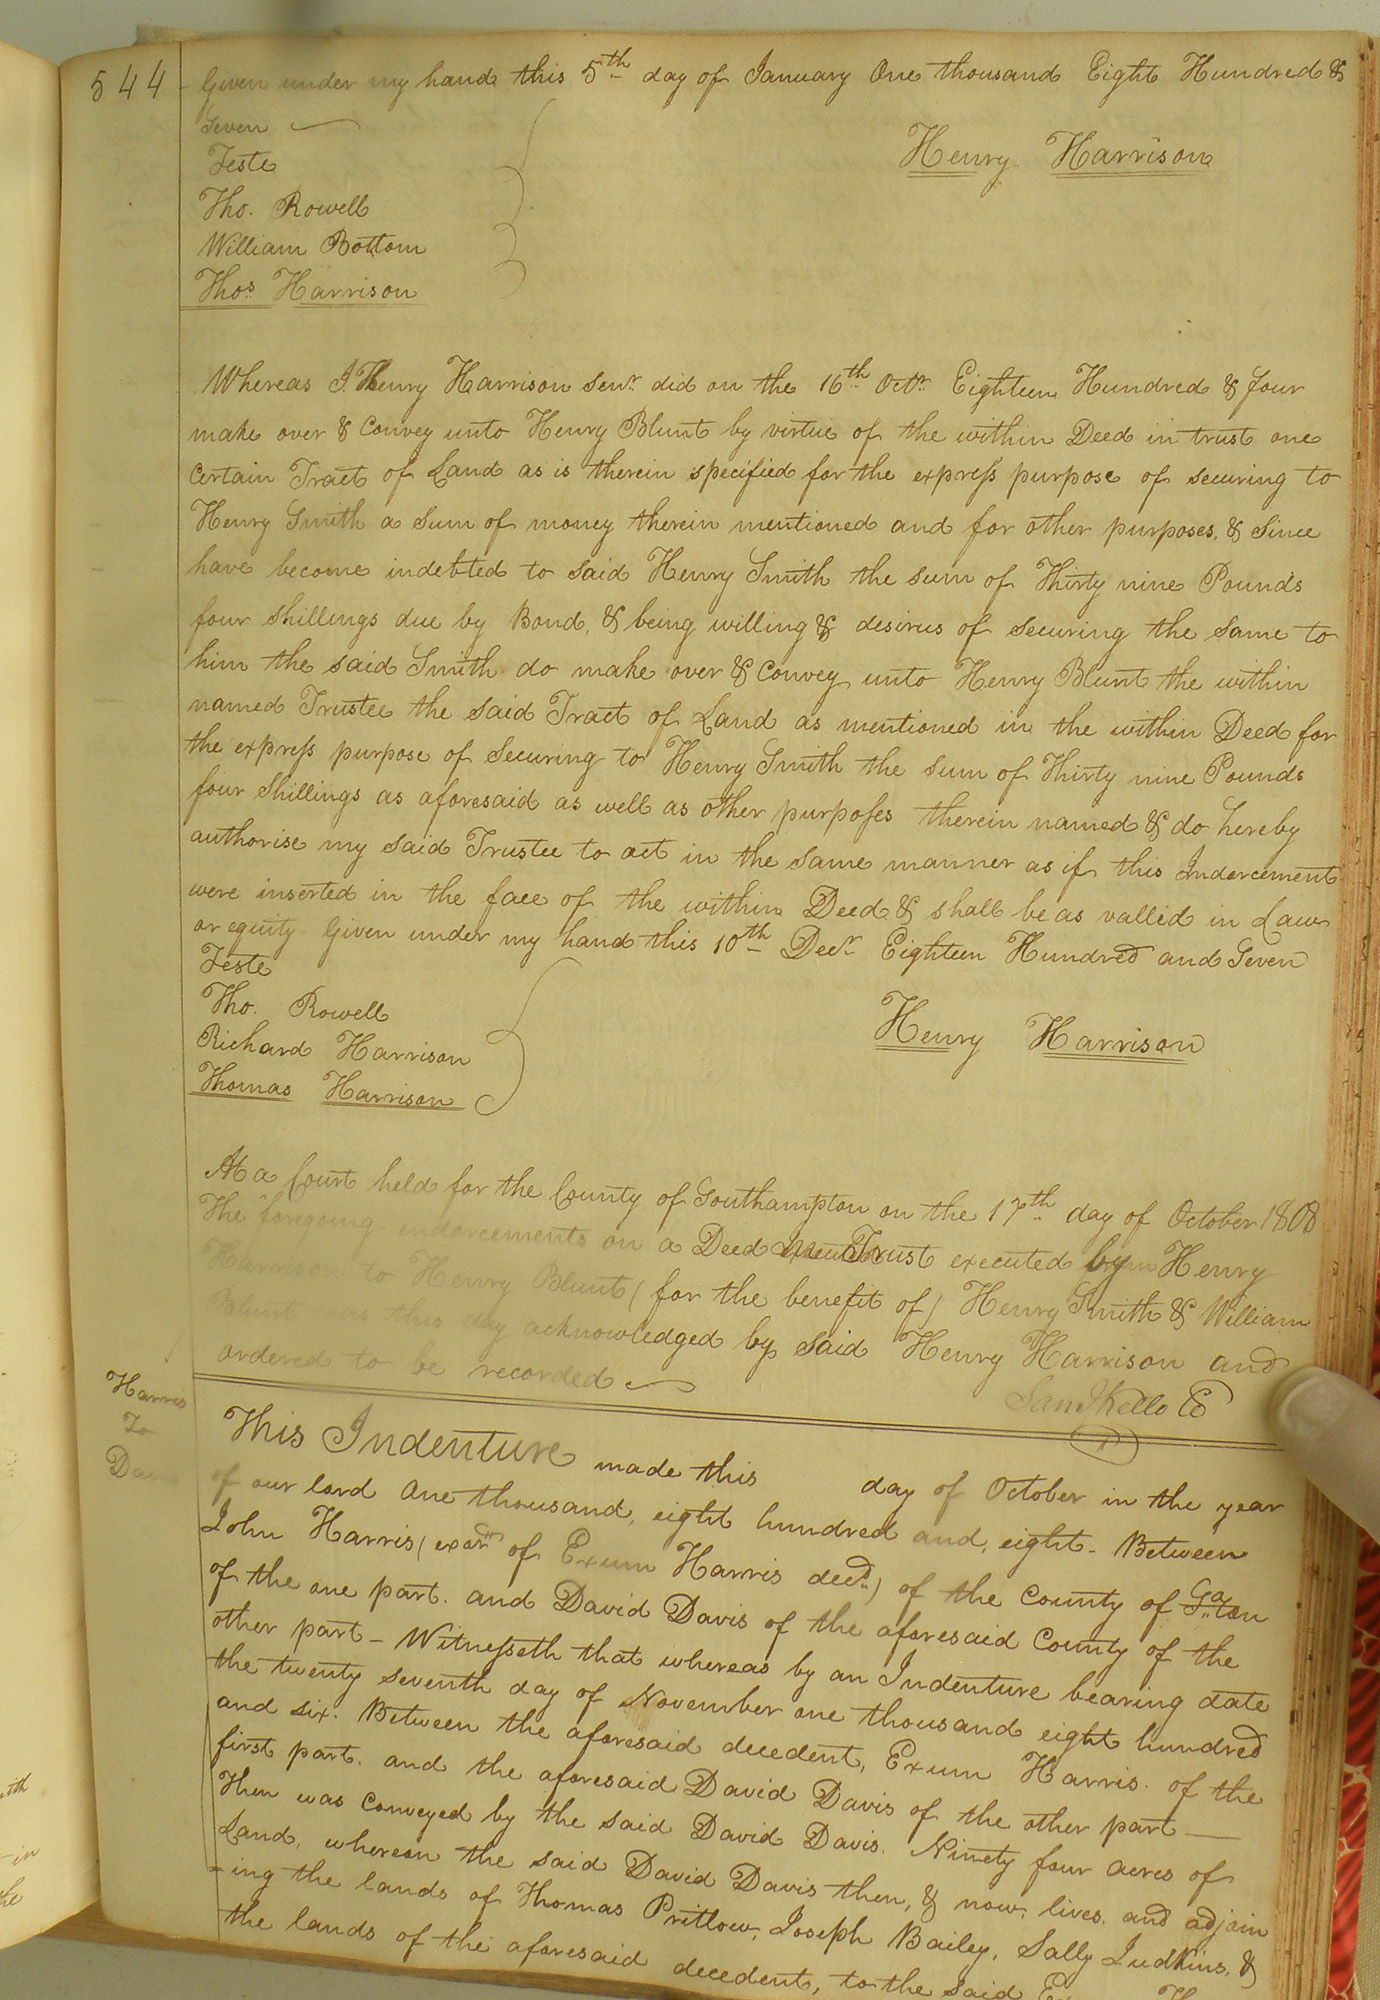 544
Given under my hand this 5th day of January One thousand Eight Hundred &
Seven
Henry Harrison
Teste
Tho. Rowell
William Bottom
Thos Harrison
Whereas I Henry Harrison Senr. did on the 16th Octr. Eighteen Hundred & four
make over & Convey unto Henry Blunt by virtue of the within Deed in trust one
Certain Tract of Land as is therein specified for the express purpose of securing to
Henry Smith a Sum of money therein mentioned and for other purposes, & Since
have become indebted to said Henry Smith the sum of Thirty nine Pounds
four Shillings due by Bond, & being willing & desirus of securing the same to
him the said Smith do make over & Convey unto Henry Blunt the within
named Trustee the said Tract of Land as mentioned in the within Deed for
the express purpose of Securing to Henry Smith the sum of Thirty nine Pounds
four Shillings as aforesaid as well as other purposes therein named & do hereby
authorise my said Trustee to act in the same manner as if this Indorcement
were inserted in the face of the within Deed & shall be as vallid in Law
or equity. Given under my hand this 10th Decr. Eighteen Hundred and Seven
Teste
Tho. Rowell
Richard Harrison
Thomas Harrison
Henry Harrison
At a Court held for the County of Southampton on the 17th day of October 1808
The foregoing endorcements on a Deed Trust executed by Henry
Harrison to Henry Blunt (for the benefit of) Henry Smith & William
Blunt was this day acknowledged by said Henry Harrison and
ordered to be recorded
Saml Kello CC
Harris
To
Davis
This Indenture made this day of October in the year
of our lord One thousand, eight hundred and, eight. Between
John Harris (exor. of Exum Harris decd.) of the County of
of the one part. and David Davis of the aforesaid County of the
other part – Witnesseth that whereas by an Indenture bearing date
the twenty seventh day of November one thousand eight hundred
and six. Between the aforesaid decedent, Exum Harris. of the
first part. and the aforesaid David Davis of the other part —
Then was Conveyed by the said David Davis. Ninety four acres of
Land, whereon the said David Davis then, & now, lives. and adjoin
-ing the lands of Thomas Pritlow, Joseph Bailey, Sally Judkins, &
the lands of the aforesaid decedent, to the said